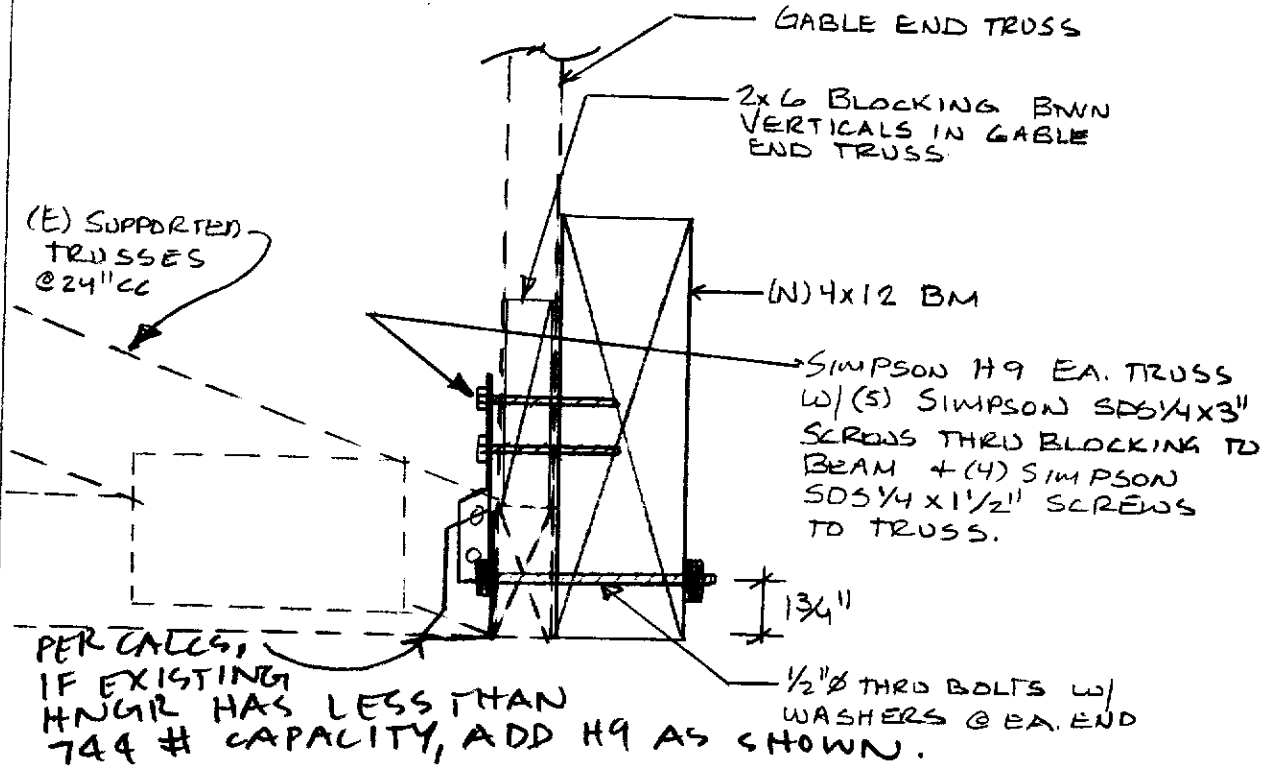 GABLE END TRUSS
2x6 BLOCKING BTWN
VERTICALS IN GABLE
END TRUSS
(E) SUPPORTED
TRUSSES
@24"CC
(N) 4x12 BM
SIMPSON H9 EA. TRUSS
W/(5) SIMPSON SDS1/4x3"
SCREWS THRU BLOCKING TO
BEAM + (4) SIMPSON
SDS 1/4 x 1 1/2" SCREWS
TO TRUSS.
1 3/4"
PER CALCS,
IF EXISTING
HNGR HAS LESS THAN
744 # CAPACITY, ADD H9 AS SHOWN.
1/2"Ø THRU BOLTS W/
WASHERS @ EA. END